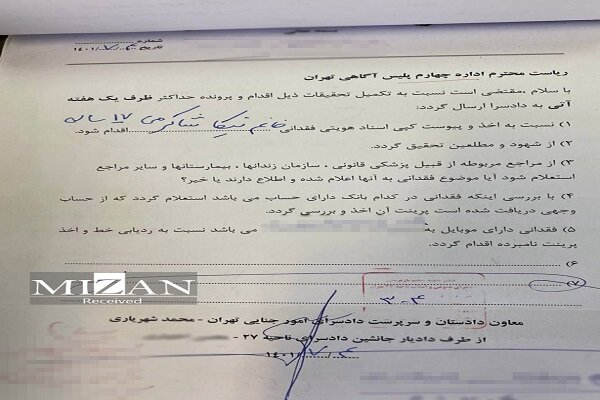 شماره
تاریخ ۱۴۰۱/۷/۴
ریاست محترم اداره چهارم پلیس آگاهی تهران
با سلام ،مقتضی است نسبت به تکمیل تحقیقات ذیل اقدام و پرونده حداکثر ظرف یک هفته
آتی به دادسرا ارسال گردد:
۱) نسبت به اخذ و پیوست کپی اسناد هویتی فقدانی خانم نیکا شاکرمی ۱۷ ساله اقدام شود.
۲) از شهود و مطلعین تحقیق گردد.
۳) از مراجع مربوطه از قبیل پزشکی قانونی ، سازمان زندانها ، بیمارستانها و سایر مراجع
استعلام شود آیا موضوع فقدانی به آنها اعلام شده و اطلاع دارند یا خیر؟
۴) با بررسی اینکه فقدانی در کدام بانک دارای حساب می باشد استعلام گردد که از حساب
وجهی دریافت شده است پرینت آن اخذ و بررسی گردد.
۵) فقدانی دارای موبایل به می باشد نسبت به ردیابی خط و اخذ
پرینت نامبرده اقدام گردد.
۶)
۷)
MIZAN
Received
۳۰۴
معاون دادستان و سرپرست دادسرای امور جنایی تهران - محمد شهریاری
از طرف دادیار جانشین دادسرای ناحیه ۲۷ -
۱۴۰۱/۷/۴